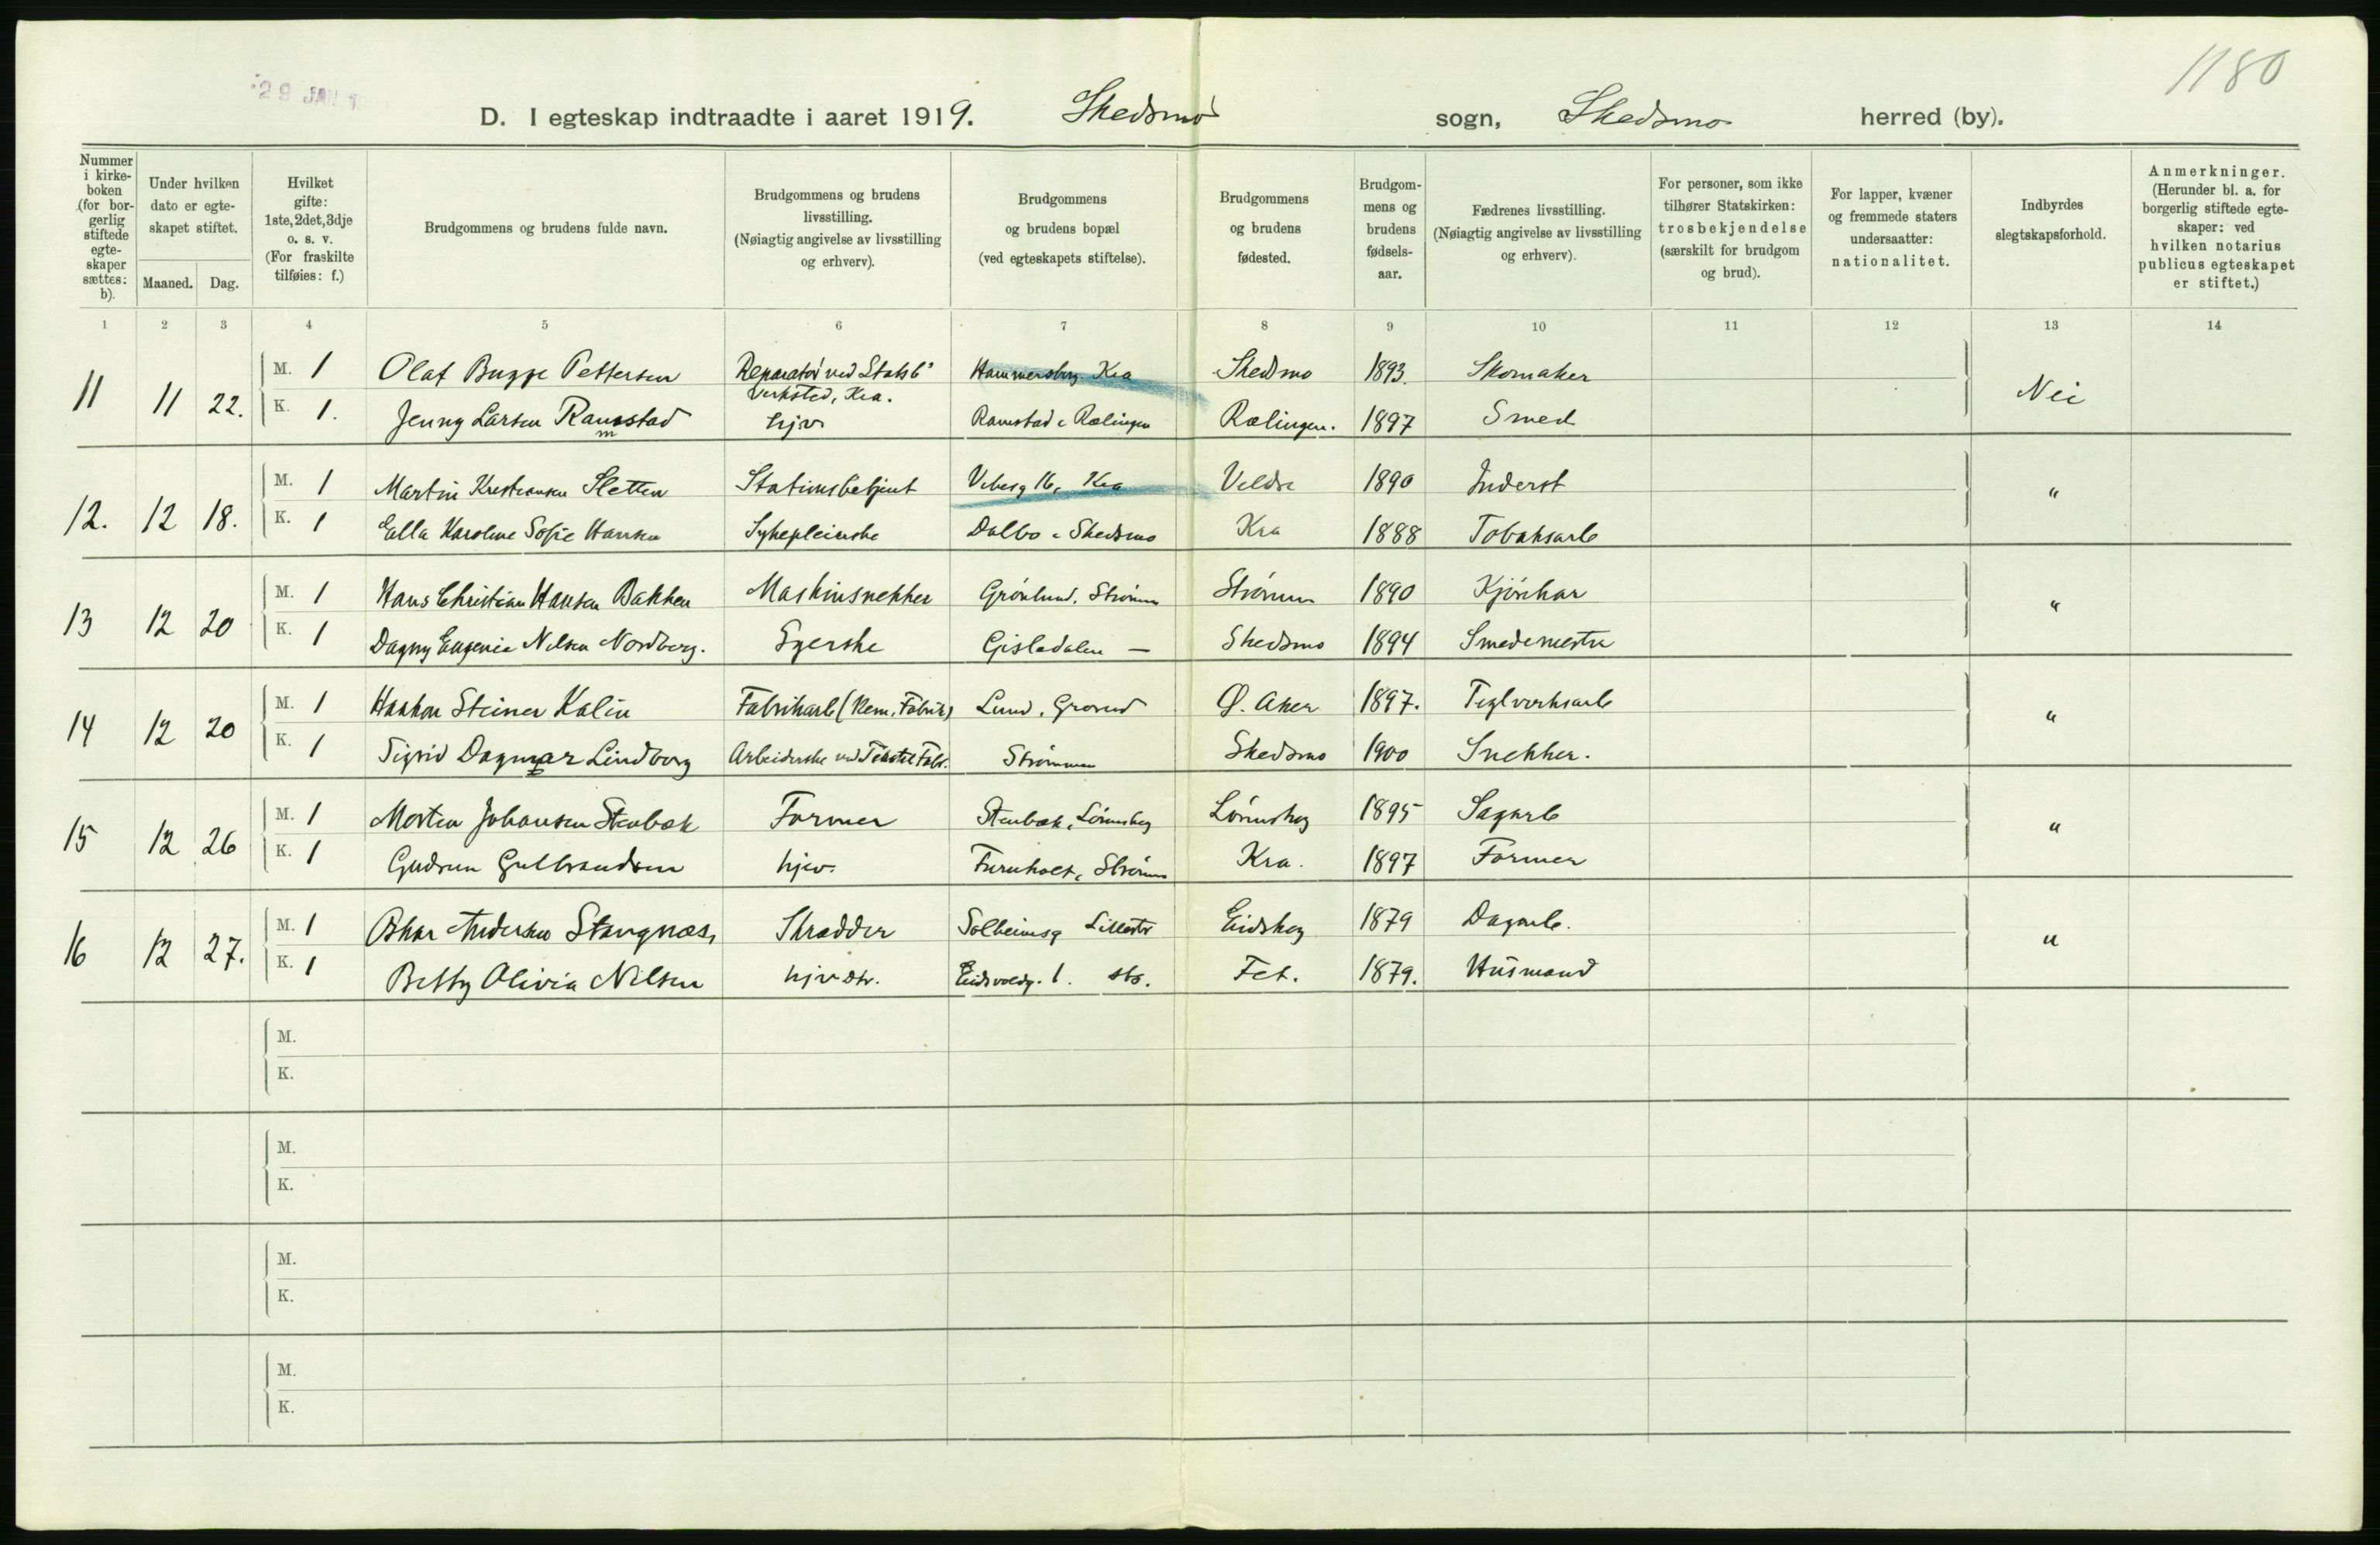 1180
29 JAN 1
D. I egteskap indtraadte i aaret 1919. Skedsmo sogn, Skedsmo herred (by).
Nummer i kirke-boken (for bor-gerlig stiftede egte-skaper sættes: b).
Under hvilken dato er egte-skapet stiftet.
Maaned. Dag.
Hvilket gifte: 1ste, 2det, 3dje o. s. v. (For fraskilte tilføies: f.)
Brudgommens og brudens fulde navn.
Brudgommens og brudens livsstilling. (Nøiagtig angivelse av livsstilling og erhverv).
Brudgommens og brudens bopæl (ved egteskapets stiftelse).
Brudgommens og brudens fødested.
Brudgom-mens og brudens fødsels-aar.
Fædrenes livsstilling. (Nøiagtig angivelse av livsstilling og erhverv).
For personer, som ikke tilhører Statskirken: trosbekjendelse (særskilt for brudgom og brud).
For lapper, kvæner og fremmede staters undersaatter: nationalitet.
Indbyrdes slegtskapsforhold.
Anmerkninger. (Herunder bl. a. for borgerlig stiftede egte-skaper: ved hvilken notarius publicus egteskapet er stiftet.)
1 2 3 4 5 6 7 8 9 10 11 12 13 14
11 11 22. M. 1 Olaf Bugge Pettersen Reparatør ved Statsb. Verksted, Kra. Hammersborg. Kra Skedsmo 1893. Skomaker Nei
K. 1. Jenny Larsen Ramstad hjv Ramstad i Rælingen Rælingen. 1897 Smed
12. 12 18. M. 1 Martin Kristiansen Sletten Stationsbetjent Vibesg 16, Kra Veldre 1890 Inderst "
K. 1 Ella Karoline Sofie Hansen Sykepleierske Dalbo i Skedsmo Kra 1888 Tobaksarb
13 12 20 M. 1 Hans Christian Hansen Bakken Maskinsnekker Grønlund, Strømm Strømm 1890 Kjørekar "
K. 1 Dagny Eugenie Nilsen Nordberg. Syerske Gisledalen — Skedsmo 1894 Smedemester
14 12 20 M. 1 Haakon Steiner Kalin Fabrikarb (Kem. Fabrik) Lund, Grorud Ø. Aker 1897. Teglverksarb "
K. 1 Sigrid Dagmar Lindberg Arbeiderske ved Tekstil Fabr. Strømmen Skedsmo 1900 Snekker.
15 12 26 M. 1 Morten Johansen Stenbæk Former Stenbæk, Lørenskog Lørenskog 1895 Sagarb "
K. 1 Gudrun Gulbrandsen hjv. Furuholt, Strømm Kra. 1897 Former
16 12 27. M. 1 Oskar Andersen Stangnæs, Skrædder Solheimsg Lillestr Eidskog 1879 Dagarb. "
K. 1 Betty Olivia Nilsen hjv dtr. Eidsvoldg. 1. sts. Fet. 1879. Husmand
M.
K.
M.
K.
M.
K.
M.
K.